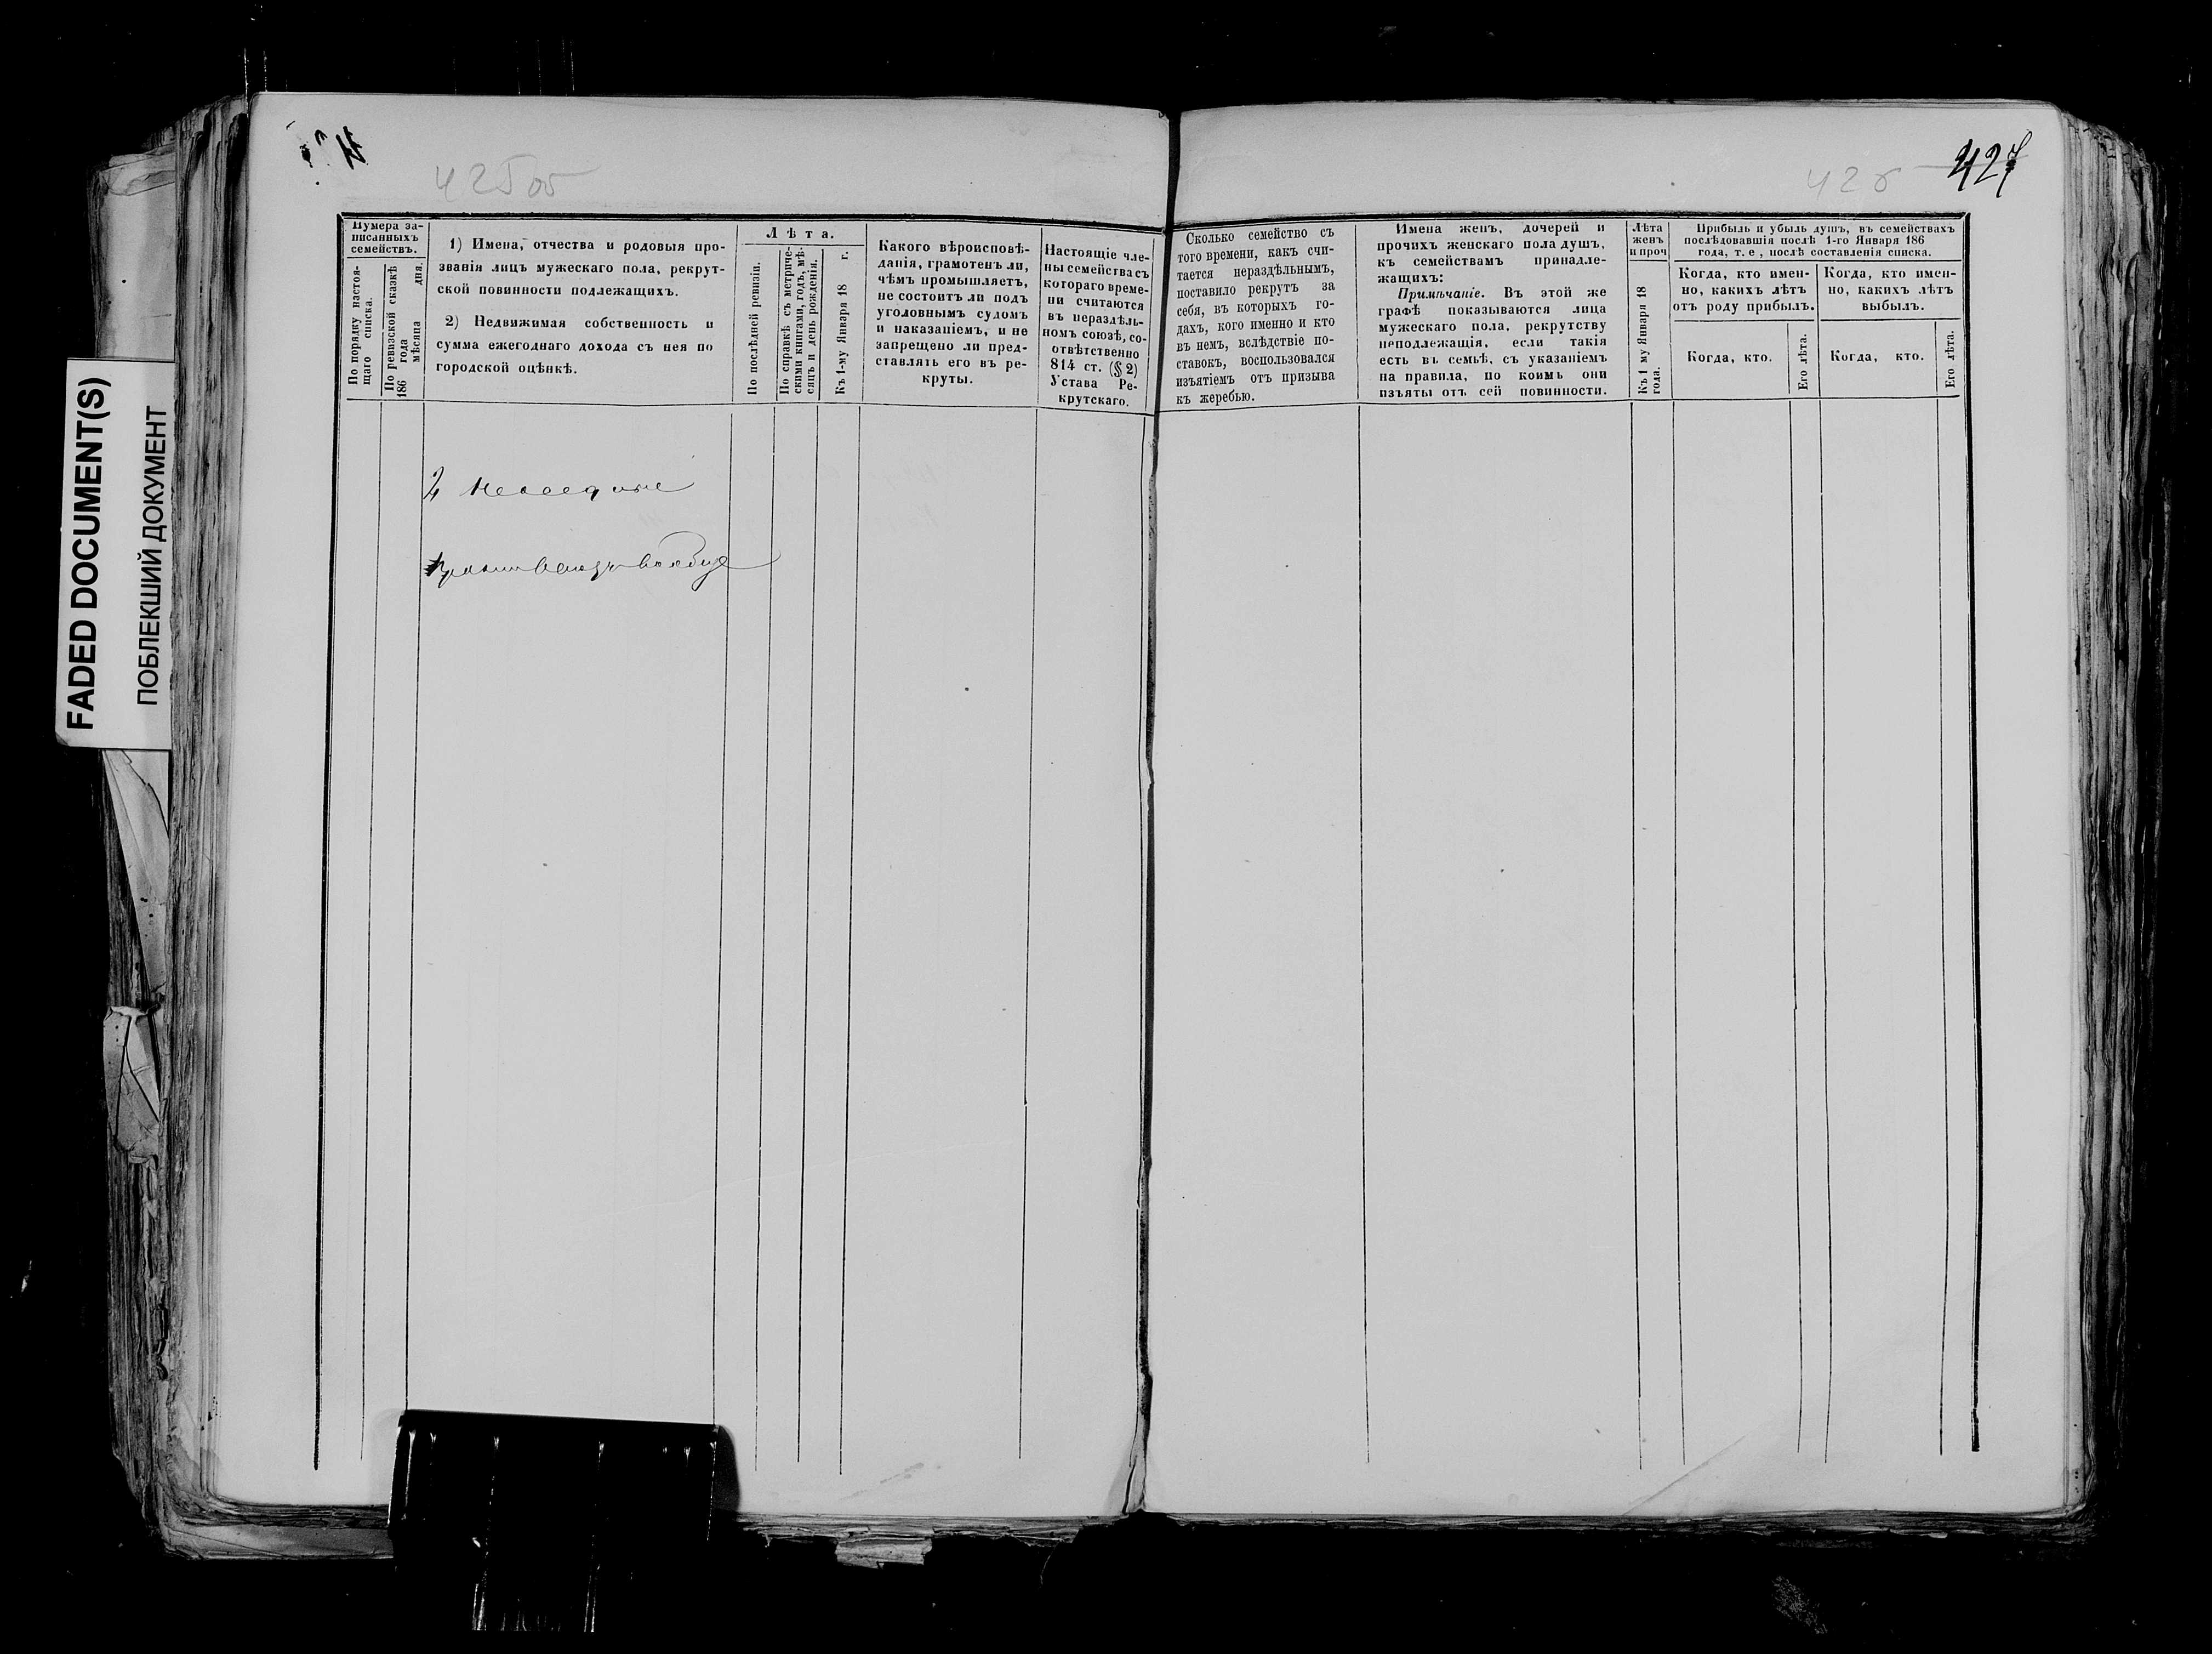 FADED DOCUMENT(S)
ПОБЛЕКШИЙ ДОКУМЕНТ
425 об
426
427
Нумера за-
писанныхъ
семействъ.
По порядку настоя-
щаго списка.
По ревизской сказкѣ
186 года
мѣсяца дня.
1) Имена, отчества и родовыя про-
званія лицъ мужескаго пола, рекрут-
ской повинности подлежащихъ.
2) Недвижимая собственность и
сумма ежегоднаго дохода съ нея по
городской оцѣнкѣ.
Лѣта.
По послѣдней ревизіи.
По справкѣ съ метриче-
скими книгами, годъ, мѣ-
сяцъ и день рожденія.
Къ 1-му Января 18 г.
Какого вѣроисповѣ-
данія, грамотенъ ли,
чѣмъ промышляетъ,
не состоитъ ли подъ
уголовнымъ судомъ
и наказаніемъ, и не
запрещено ли пред-
ставлять его въ ре-
круты.
Настоящіе чле-
ны семейства съ
котораго време-
ни считаются
въ нераздѣль-
номъ союзѣ, со-
отвѣтственно
814 ст. (§ 2)
Устава Ре-
крутскаго.
Сколько семейство съ
того времени, какъ счи-
тается нераздѣльнымъ,
поставило рекрутъ за
себя, въ которыхъ го-
дахъ, кого именно и кто
въ немъ, вслѣдствіе по-
ставокъ, воспользовался
изъятіемъ отъ призыва
къ жеребью.
Имена женъ, дочерей и
прочихъ женскаго пола душъ,
къ семействамъ принадле-
жащихъ:
Примѣчаніе. Въ этой же
графѣ показываются лица
мужескаго пола, рекрутству
неподлежащія, если такія
есть въ семьѣ, съ указаніемъ
на правила, по коимъ они
изъяты отъ сей повинности.
Лѣта
женъ
и проч
Къ 1 му Января 18
года.
Прибыль и убыль душъ, въ семействахъ
послѣдовавшія послѣ 1-го Января 186
года, т. е, послѣ составленія списка.
Когда, кто имен-
но, какихъ лѣтъ
отъ роду прибылъ.
Когда, кто.
Его лѣта.
Когда, кто имен-
но, какихъ лѣтъ
выбылъ.
Когда, кто.
Его лѣта.